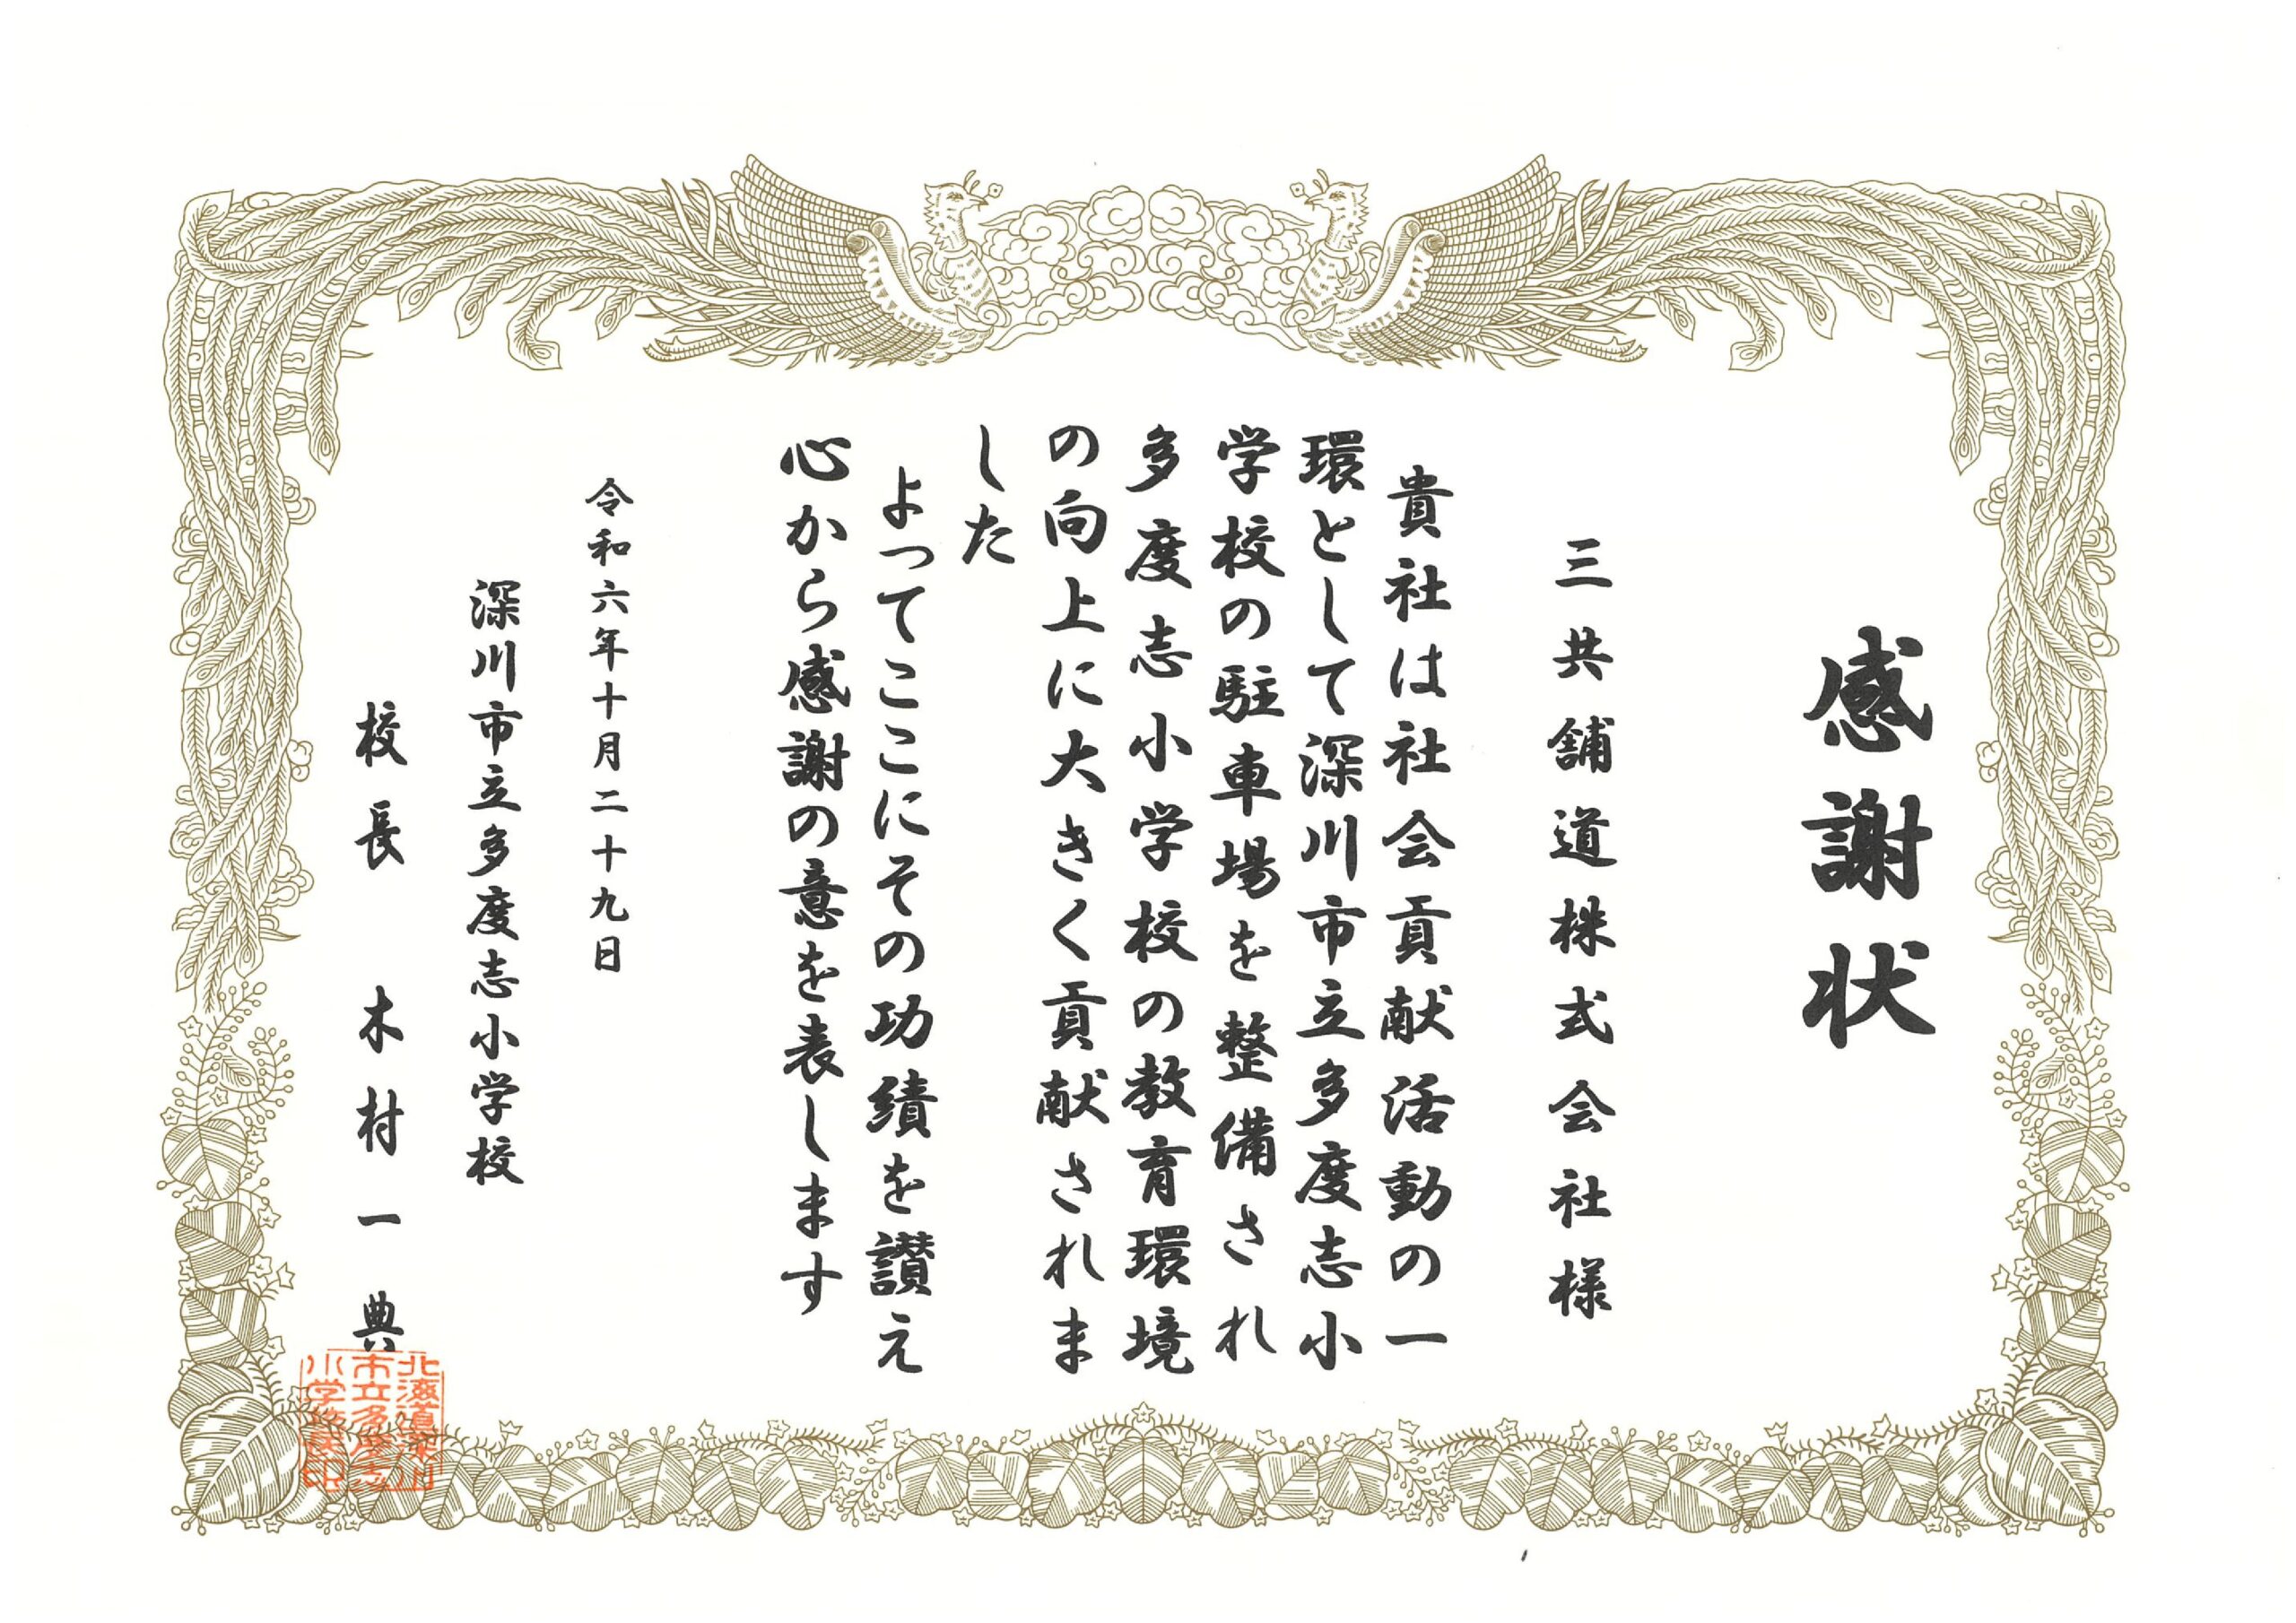 感謝状
三共舗道株式会社様
貴社は社会貢献活動の一
環として深川市立多度志小
学校の駐車場を整備され
多度志小学校の教育環境
の向上に大きく貢献されま
した
よってここにその功績を讃え
心から感謝の意を表します
令和六年十月二十九日
深川市立多度志小学校
校長 木村一典
北海道深川
市立多度志
小学校長印